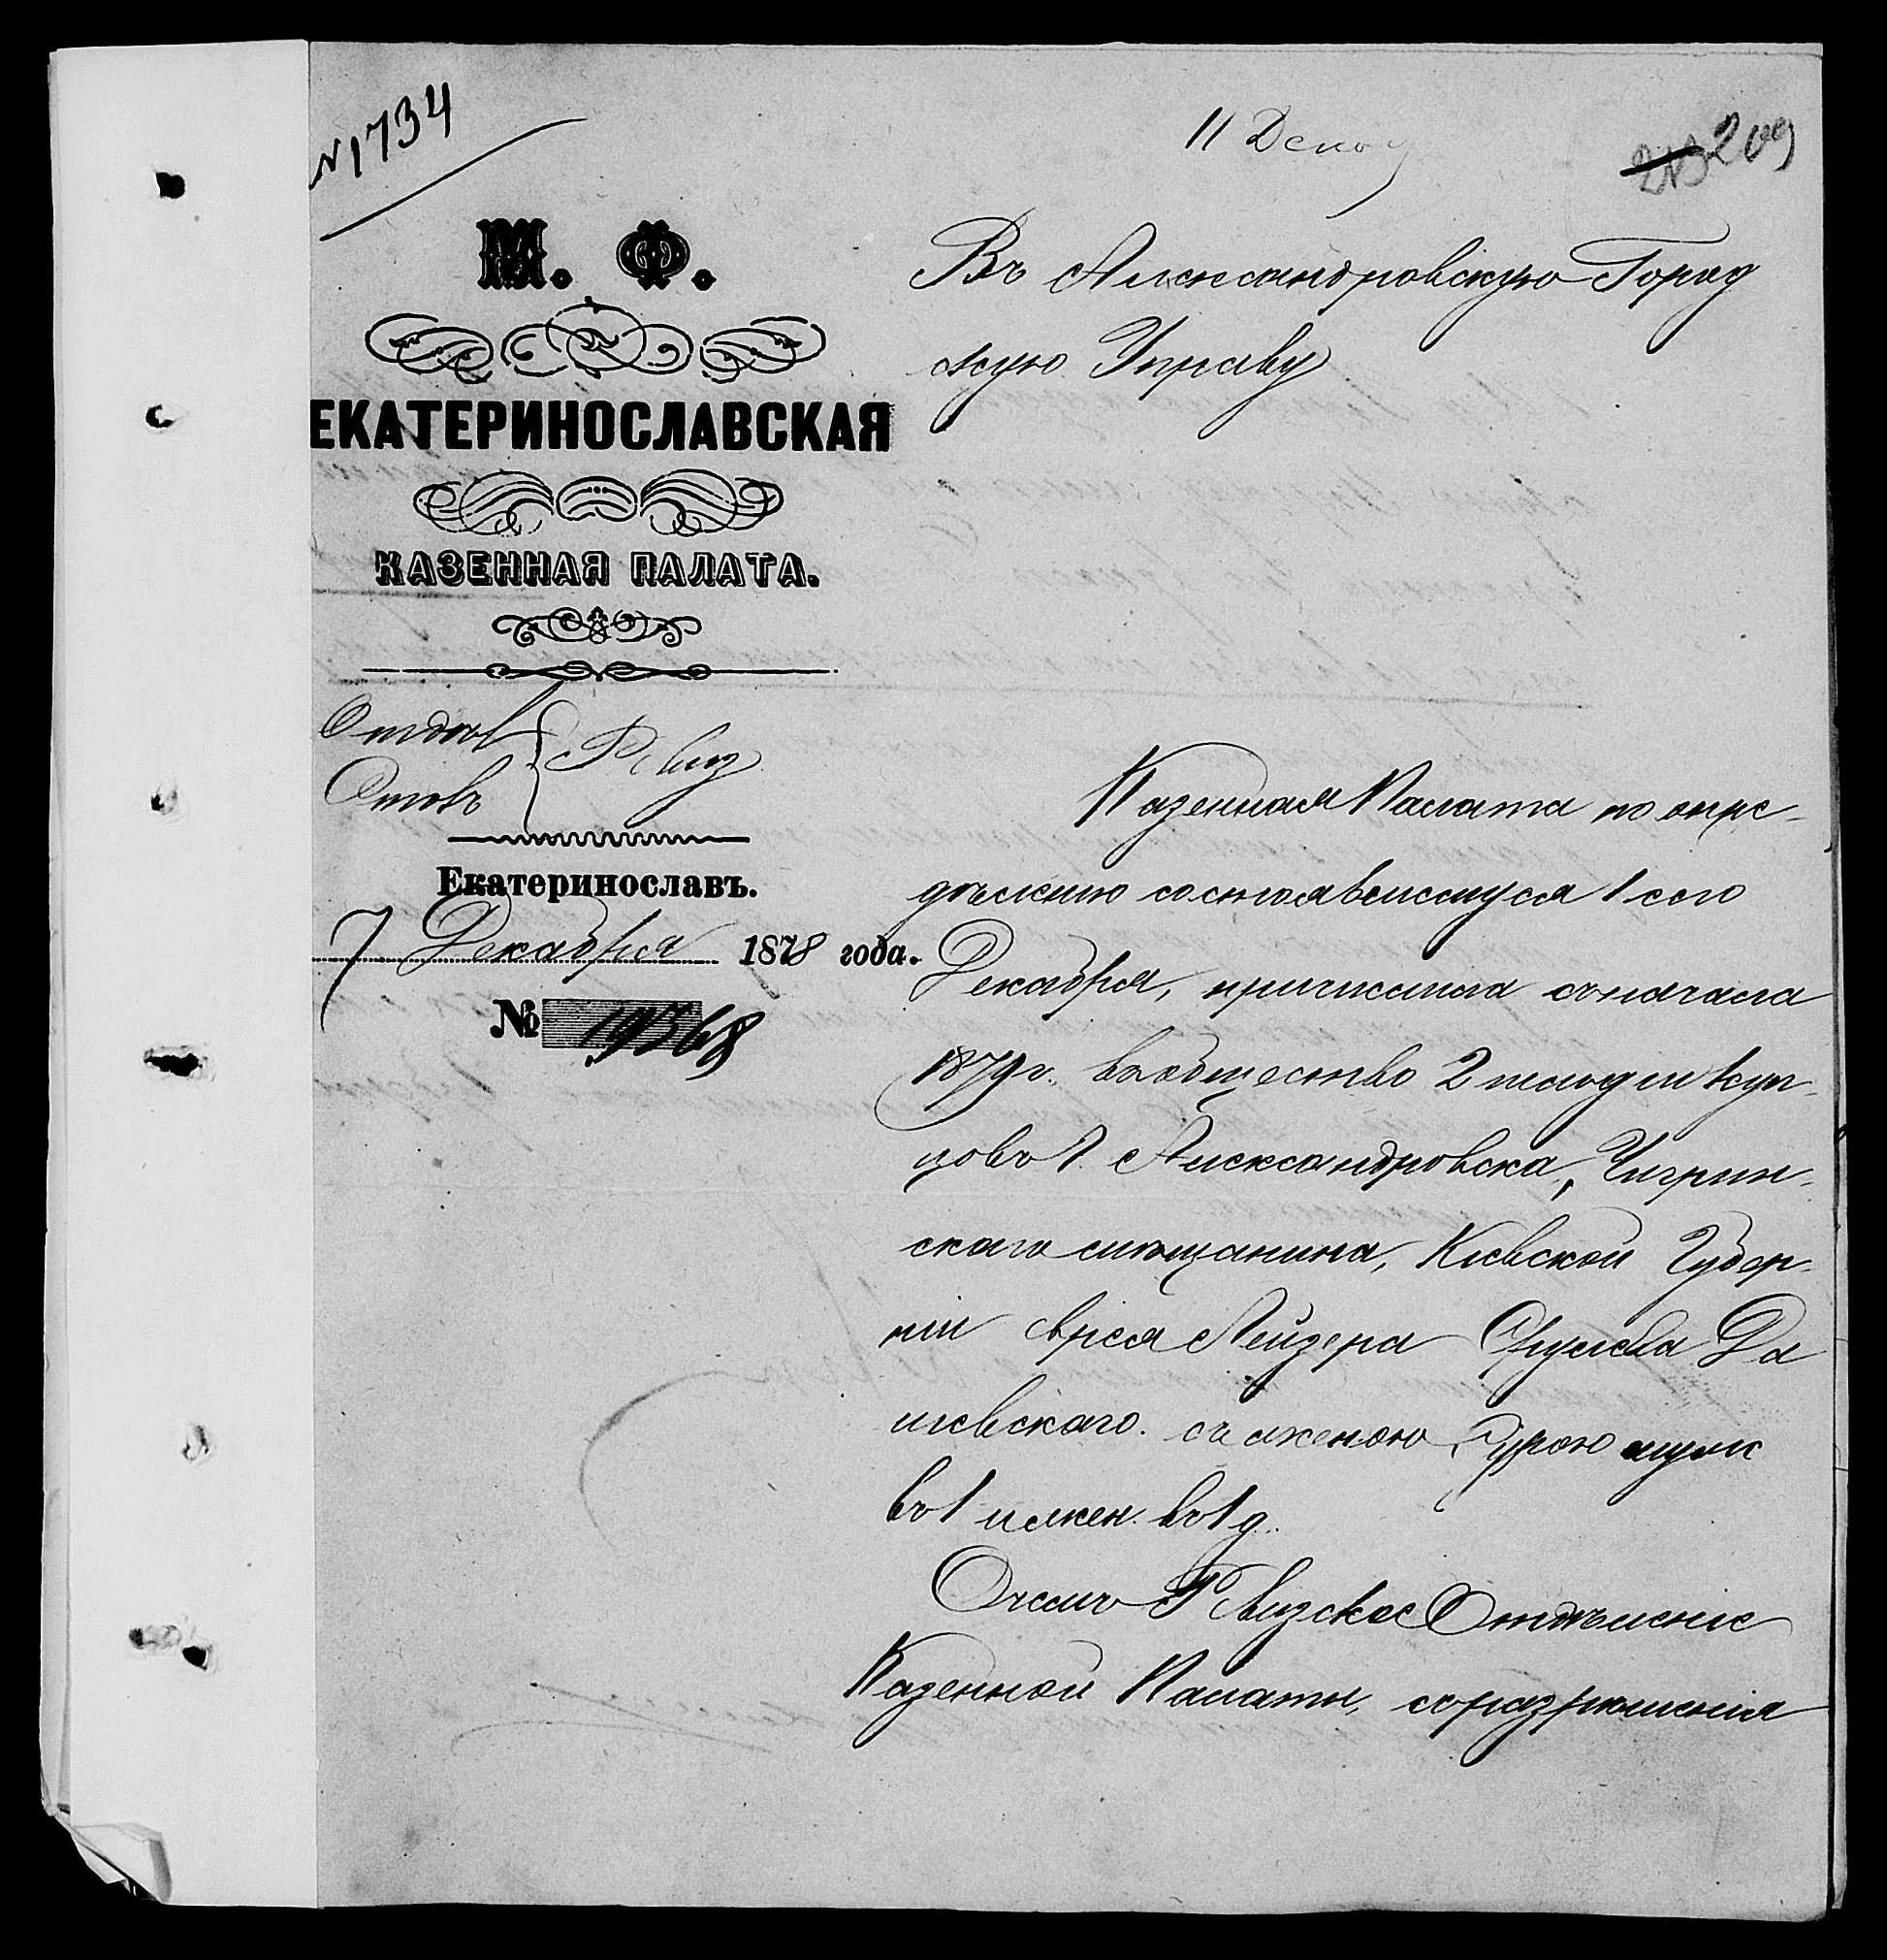 № 1734
11 Декаб
209
М. Ф.
ЕКАТЕРИНОСЛАВСКАЯ
КАЗЕННАЯ ПАЛАТА.
Отдѣл
Столъ
Ревиз
Екатеринославъ.
7 Декабря 1878 года.
№ 19368
Въ Александровскую Город
скую Управу
Казенная Палата по опре-
дѣленію состоявшемуся 1 сего
Декабря, причислила съ начала
1879 г. въ общество 2 гильдіи куп-
цовъ г. Александровска, Чигрин-
скаго мѣщанина, Кіевской Губер-
ніи еврея Лейзера Да
шевскаго. съ женою мужс
въ 1 и жен. въ 1 д.
О чемъ Ревизское Отдѣленіе
Казенной Палаты, съ разрѣшенія